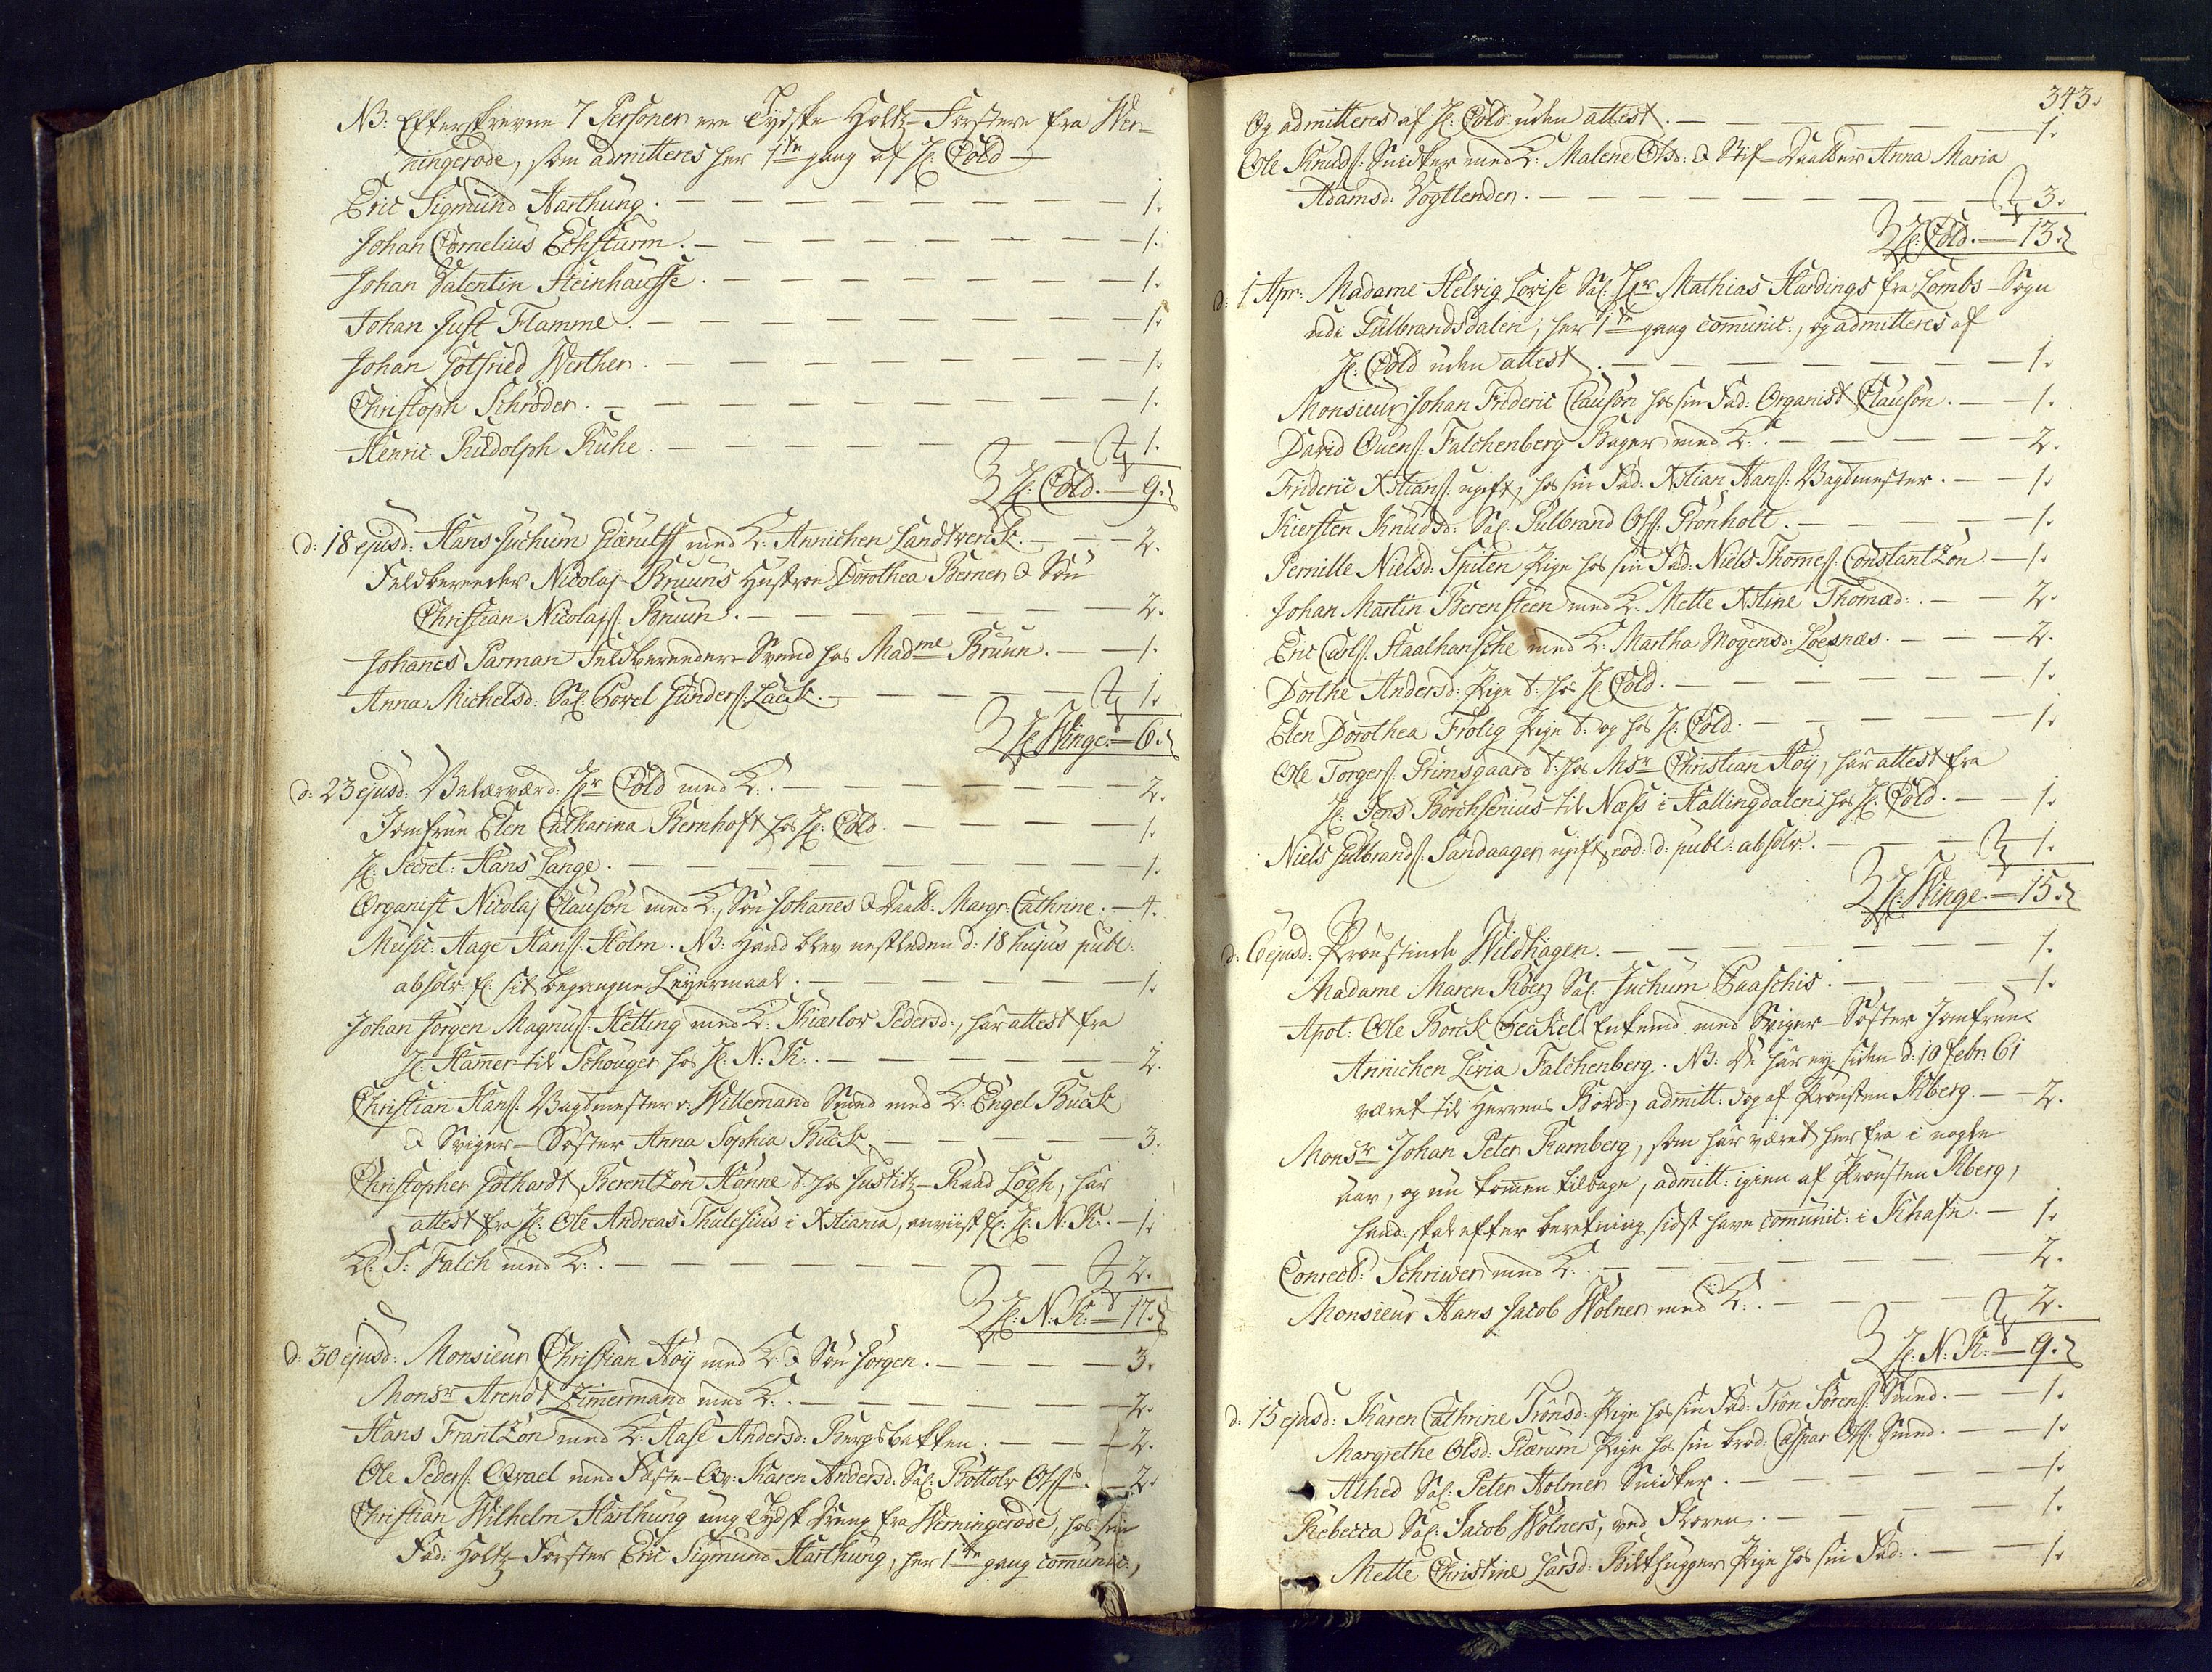 NB: Efterskrevne 7 Personer ere Tydske Holtz-Forstere fra Wer-
ningerode, som admitteres her 1ste gang af H: Cold —
Eric Sigmund Harthung. — 1.
Johan Cornelius Ecksturm. — 1.
Johan Valentin Steinhausse. — 1.
Johan Just Flamme. — 1.
Johan Gotfried Werther. — 1.
Christoph Schrøder. — 1.
Henric Rudolph Ruhe. — 1.
H: Cold. — 9.
d: 18 ejusd: Hans Juchum med K: Annichen Landtverck. — 2.
Feldbereder Nicolaj Bruuns Hustroe Dorothea Berner & Søn
Christian Nicolajs: Bruun. — 2.
Johanes Parman Feldbereder-Svend hos Madme Bruun. — 1.
Anna Michelsd: Sal: Povel Gunders: Laack. — 1.
H: Winge. — 6.
d: 23 ejusd: Velærværd: Hr Cold med K:. — 2.
Jomfrue Elen Catharina Bernhoft hos H: Cold. — 1.
H: Secret: Hans Lange. — 1.
Organist Nicolaj Clauson med K:, Søn Johanes & Daatt: Margr: Cathrine. — 4.
Music: Aage Hans: Holm. NB: Hand blev nestleden d: 18 hujus publ:
absolv: f: sit begangne Leyermaal. — 1.
Johan Jørgen Magnus: Hetting med K: Kierlov Pedersd:, har attest fra
H: Hamer til Schouger hos H: N: K:. — 2.
Christian Hans: Vagtmester v: Willemand Sund med K: Engel Buck
& Sviger-Søster Anna Sophia Buck. — 3.
Christopher Gothardt Berentzon Hønne t: hos Justitz-Raad Løgh, har
attest fra H: Ole Andreas Thulesius i Xtiania, anviist f: H: N: K:. — 1.
Kl: S: Falch med K:. — 2.
H: N: K: — 17.
d: 30 ejusd: Monsieur Christian Høy med K: & Søn Jørgen. — 3.
Monsr Arendt Zimermand med K:. — 2.
Hans Frantzon med K: Aase Andersd: Bergsbakken. — 2.
Ole Peders: Qvael med Fæste-Qv: Karen Andersd: Sal: Bottolv Ols:s. — 2.
Christian Wilhelm Harthung ung Tydsk Dreng fra Werningerode, hos sin
Fad: Holtz-Forster Eric Sigmund Harthung, her 1ste gang comunic:,
343.
Og admitteres af H: Cold uden attest. — 1.
Ole Knuds: Snidker med K: Malene Olsd: & Stif-Daatter Anna Maria
Adamsd: Vogtlender. — 3.
H: Cold. — 13.
d: 1 Apr: Madame Helvig Lovise Sal: Hr Mathias Hardings fra Lombs-Sogn
udi Gulbrandsdalen, her 1ste gang comunic:, og admitteres af
H: Cold uden attest. — 1.
Monsieur Johan Frideric Clauson hos sin Fad: Organist Clauson. — 1.
David Ouens: Falchenberg Bager med K:. — 2.
Frideric Xstians: ugift, hos sin Fad: Xstian Hans: Vagtmester. — 1.
Kiersten Knudsd: Sal: Gulbrand Ols: Grønholt. — 1.
Pernille Nielsd: Spiten Pige hos sin Fad: Niels Thomes: Constantzon. — 1.
Johan Martin Berensteen med K: Mette Xstine Thomæd:. — 2.
Eric Carls: Staalhansche med K: Martha Mogensd: Loesnæs. — 2.
Dorthe Andersd: Pige t: hos H: Cold. — 1.
Elen Dorothea Frolig Pige t: og hos H: Cold. — 1.
Ole Torgers: Grimsgaard t: hos Msr Christian Høy, har attest fra
H: Jens Borchsenius til Næss i Hallingdalen hos H: Cold. — 1.
Niels Gulbrands: Sandaager ugift, eod: d: publ: absolv:. — 1.
H: Winge. — 15.
d: 6 ejusd: Proustinde Wildhagen. — 1.
Madame Maren Røer Sal: Juchum Paaschis. — 1.
Apot: Ole Borck Feckel Enkemd med Sviger-Søster Jomfrue
Annichen Livia Falchenberg. NB: De har ey siden d: 10 febr: 61
været til Herrens Bord, admitt: dog af Prousten Kberg. — 2.
Monsr Johan Peter Ramberg, som har været her fra i nogle
aar, og nu komen tilbage, admitt: igien af Prousten Kberg,
hand skal efter beretning sidst have comunic: i Khafn. — 1.
Conrect: Schriwer med K:. — 2.
Monsieur Hans Jacob Wølner med K:. — 2.
H: N: K: — 9.
d: 15 ejusd: Karen Cathrine Trønsd: Pige hos sin Fad: Trøn Sørens: Smed. — 1.
Margrethe Olsd: Bærum Pige hos sin brod: Caspar Ols: Smed. — 1.
Alhed Sal: Peter Holmer Snidker. — 1.
Rebecca Sal: Jacob Wølners, ved Floren. — 1.
Mette Christine Larsd: Bilthugger Pige hos sin Fad:. — 1.